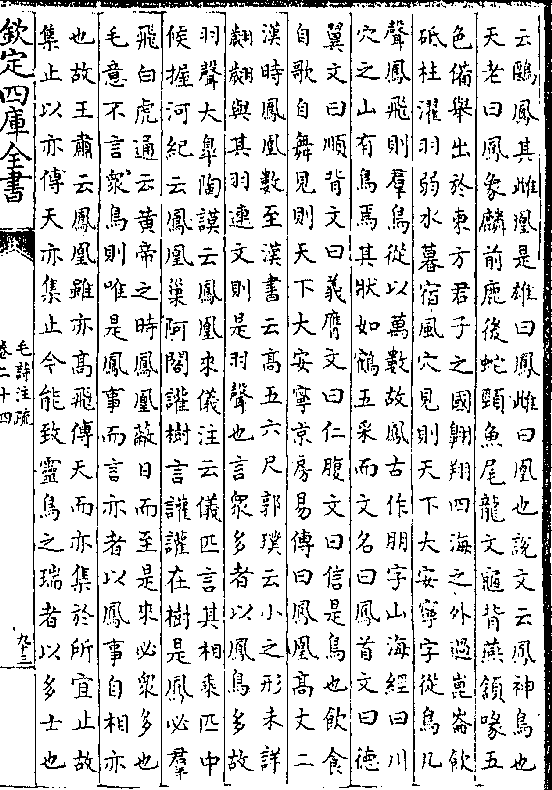 云鶠鳳其雌凰是雄曰鳳雌曰凰也說文云鳳神鳥也
天老曰鳳象麟前鹿後蛇頸魚尾龍文龜背燕頷喙五
色備舉出於東方君子之國翺翔四海之外過崑崙飲
砥柱濯羽弱水暮宿風穴見則天下大安寧字從鳥凡
聲鳳飛則羣鳥從以萬數故鳳古作朋字山海經曰川
穴之山有鳥焉其狀如鶴五采而文名曰鳳首文曰德
翼文曰順背文曰義膺文曰仁腹文曰信是鳥也飲食
自歌自舞見則天下大安寧京房易傳曰鳳凰高丈二
漢時鳳凰數至漢書云高五六尺郭璞云小之形未詳
翽翽與其羽連文則是羽聲也言衆多者以鳳鳥多故
羽聲大臯陶謨云鳳凰來儀注云儀匹言其相乘匹中
候握河紀云鳳凰巢阿閣讙樹言讙讙在樹是鳳必羣
飛白虎通云黄帝之時鳳凰蔽日而至是來必衆多也
毛意不言衆鳥則唯是鳳事而言亦者以鳳事自相亦
也故王肅云鳳凰雖亦高飛傅天而亦集於所宜止故
集止以亦傅天亦集止今能致靈鳥之瑞者以多士也
欽定四庫全書
毛詩注疏
卷二十四
九十三